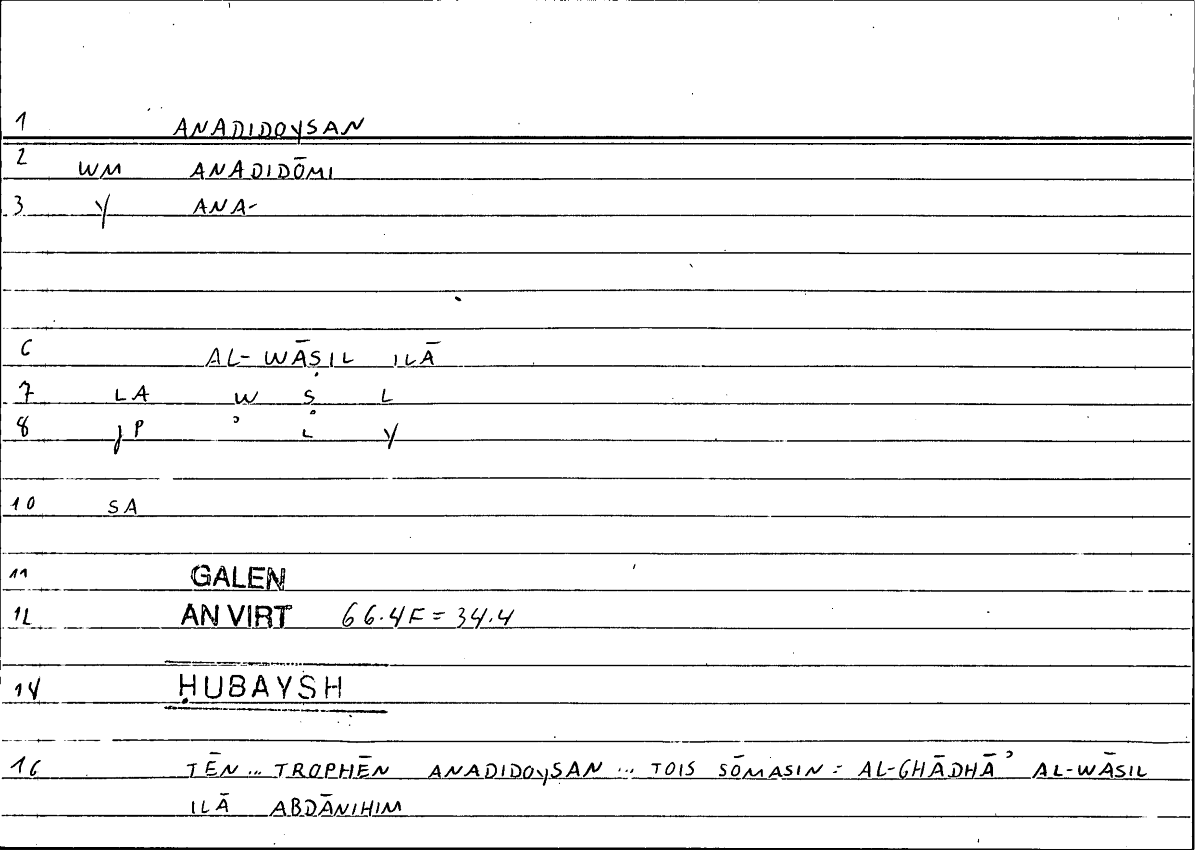 1 ANADIDOYSAN
2 WM ANADIDŌMI
3 Y ANA-
6 AL-WĀṢIL ILĀ
7 LA W Ṣ L
8 JP ʾ L Y
10 SA
11 GALEN
12 AN VIRT 66.4F = 34.4
14 ḤUBAYSH
16 TĒN... TROPHĒN ANADIDOYSAN ... TOIS SŌMASIN = AL-GHĀDHĀʾ AL-WĀSIL
ILĀ ABDĀNIHIM